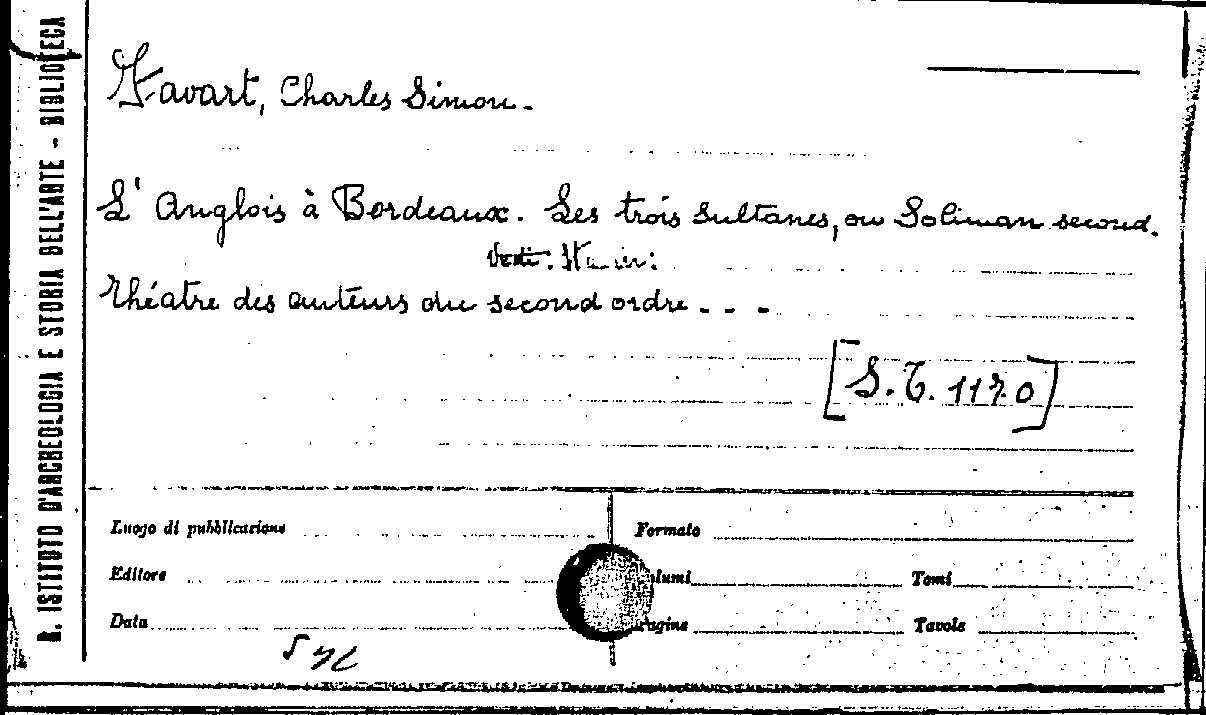 R. ISTITUTO D'ARCHEOLOGIA E STORIA DELL'ARTE - BIBLIOTECA
Favart, Charles Simon.
L'Anglois à Bordeaux. Les trois sultanes, ou Soliman second.
Vedi:
Théatre des auteurs du second ordre . . .
[S.T. 1170]
Luogo di pubblicazione
Formato
Editore
lumi
Tomi
Data
agine
Tavole